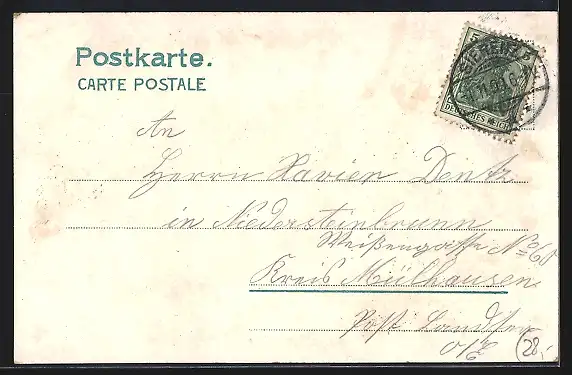 Postkarte.
CARTE POSTALE
5
DEUTSCHES REICH
An
Herrn Xavier Dentz
in Niedersteinbrunn
Weißengasse No 60
Kreis Mülhausen
Post Landser
O/E
28,-